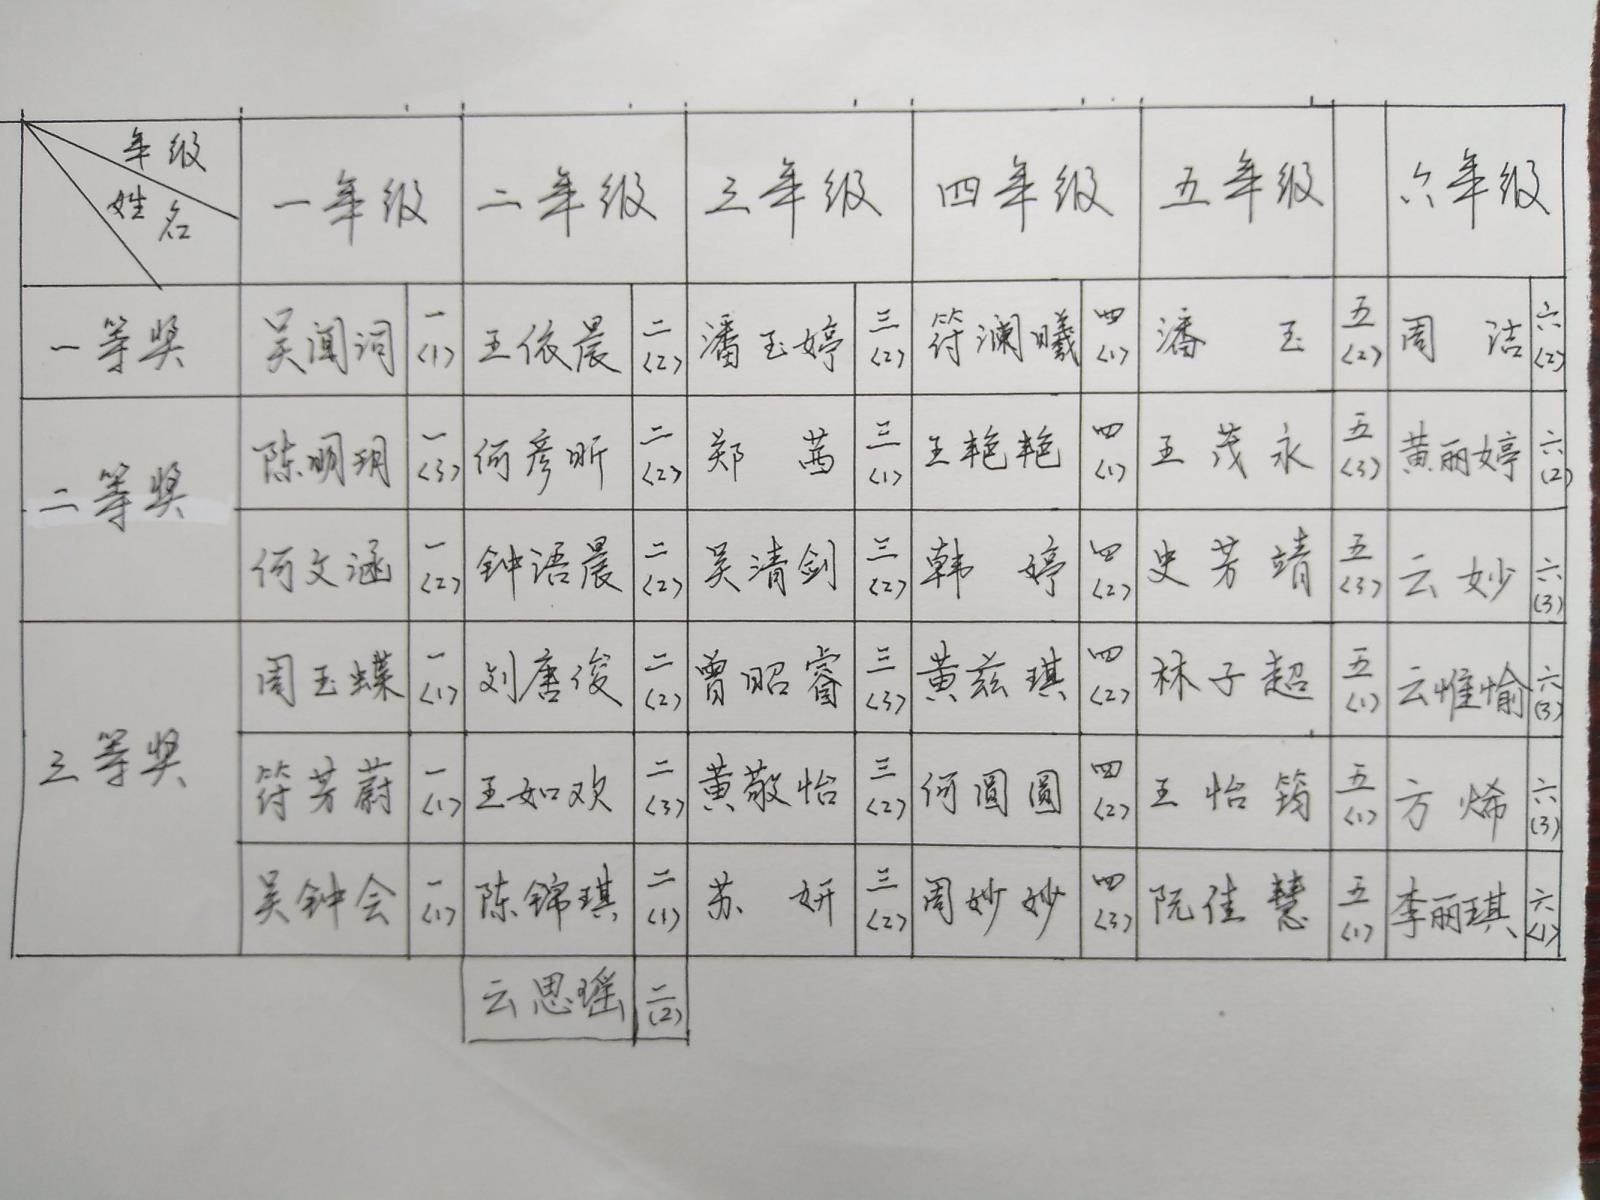 年级
姓名
一年级 二年级 三年级 四年级 五年级 六年级
一等奖 吴闻词 一(1) 王依晨 二(2) 潘玉婷 三(2) 符澜曦 四(1) 潘玉 五(2) 周洁 六(2)
二等奖 陈明玥 一(3) 何彦昕 二(2) 郑茜 三(1) 王艳艳 四(1) 王茂永 五(3) 黄丽婷 六(2)
何文涵 一(2) 钟语晨 二(2) 吴清剑 三(2) 韩婷 四(2) 史芳靖 五(3) 云妙 六(3)
三等奖 周玉蝶 一(1) 刘唐俊 二(2) 曾昭睿 三(3) 黄兹琪 四(2) 林子超 五(1) 云惟愉 六(3)
符芳蔚 一(1) 王如欢 二(3) 黄敬怡 三(2) 何圆圆 四(2) 王怡筠 五(1) 方烯 六(3)
吴钟会 一(1) 陈锦琪 二(1) 苏妍 三(2) 周妙妙 四(3) 阮佳慧 五(1) 李丽琪 六(1)
云思瑶 二(2)